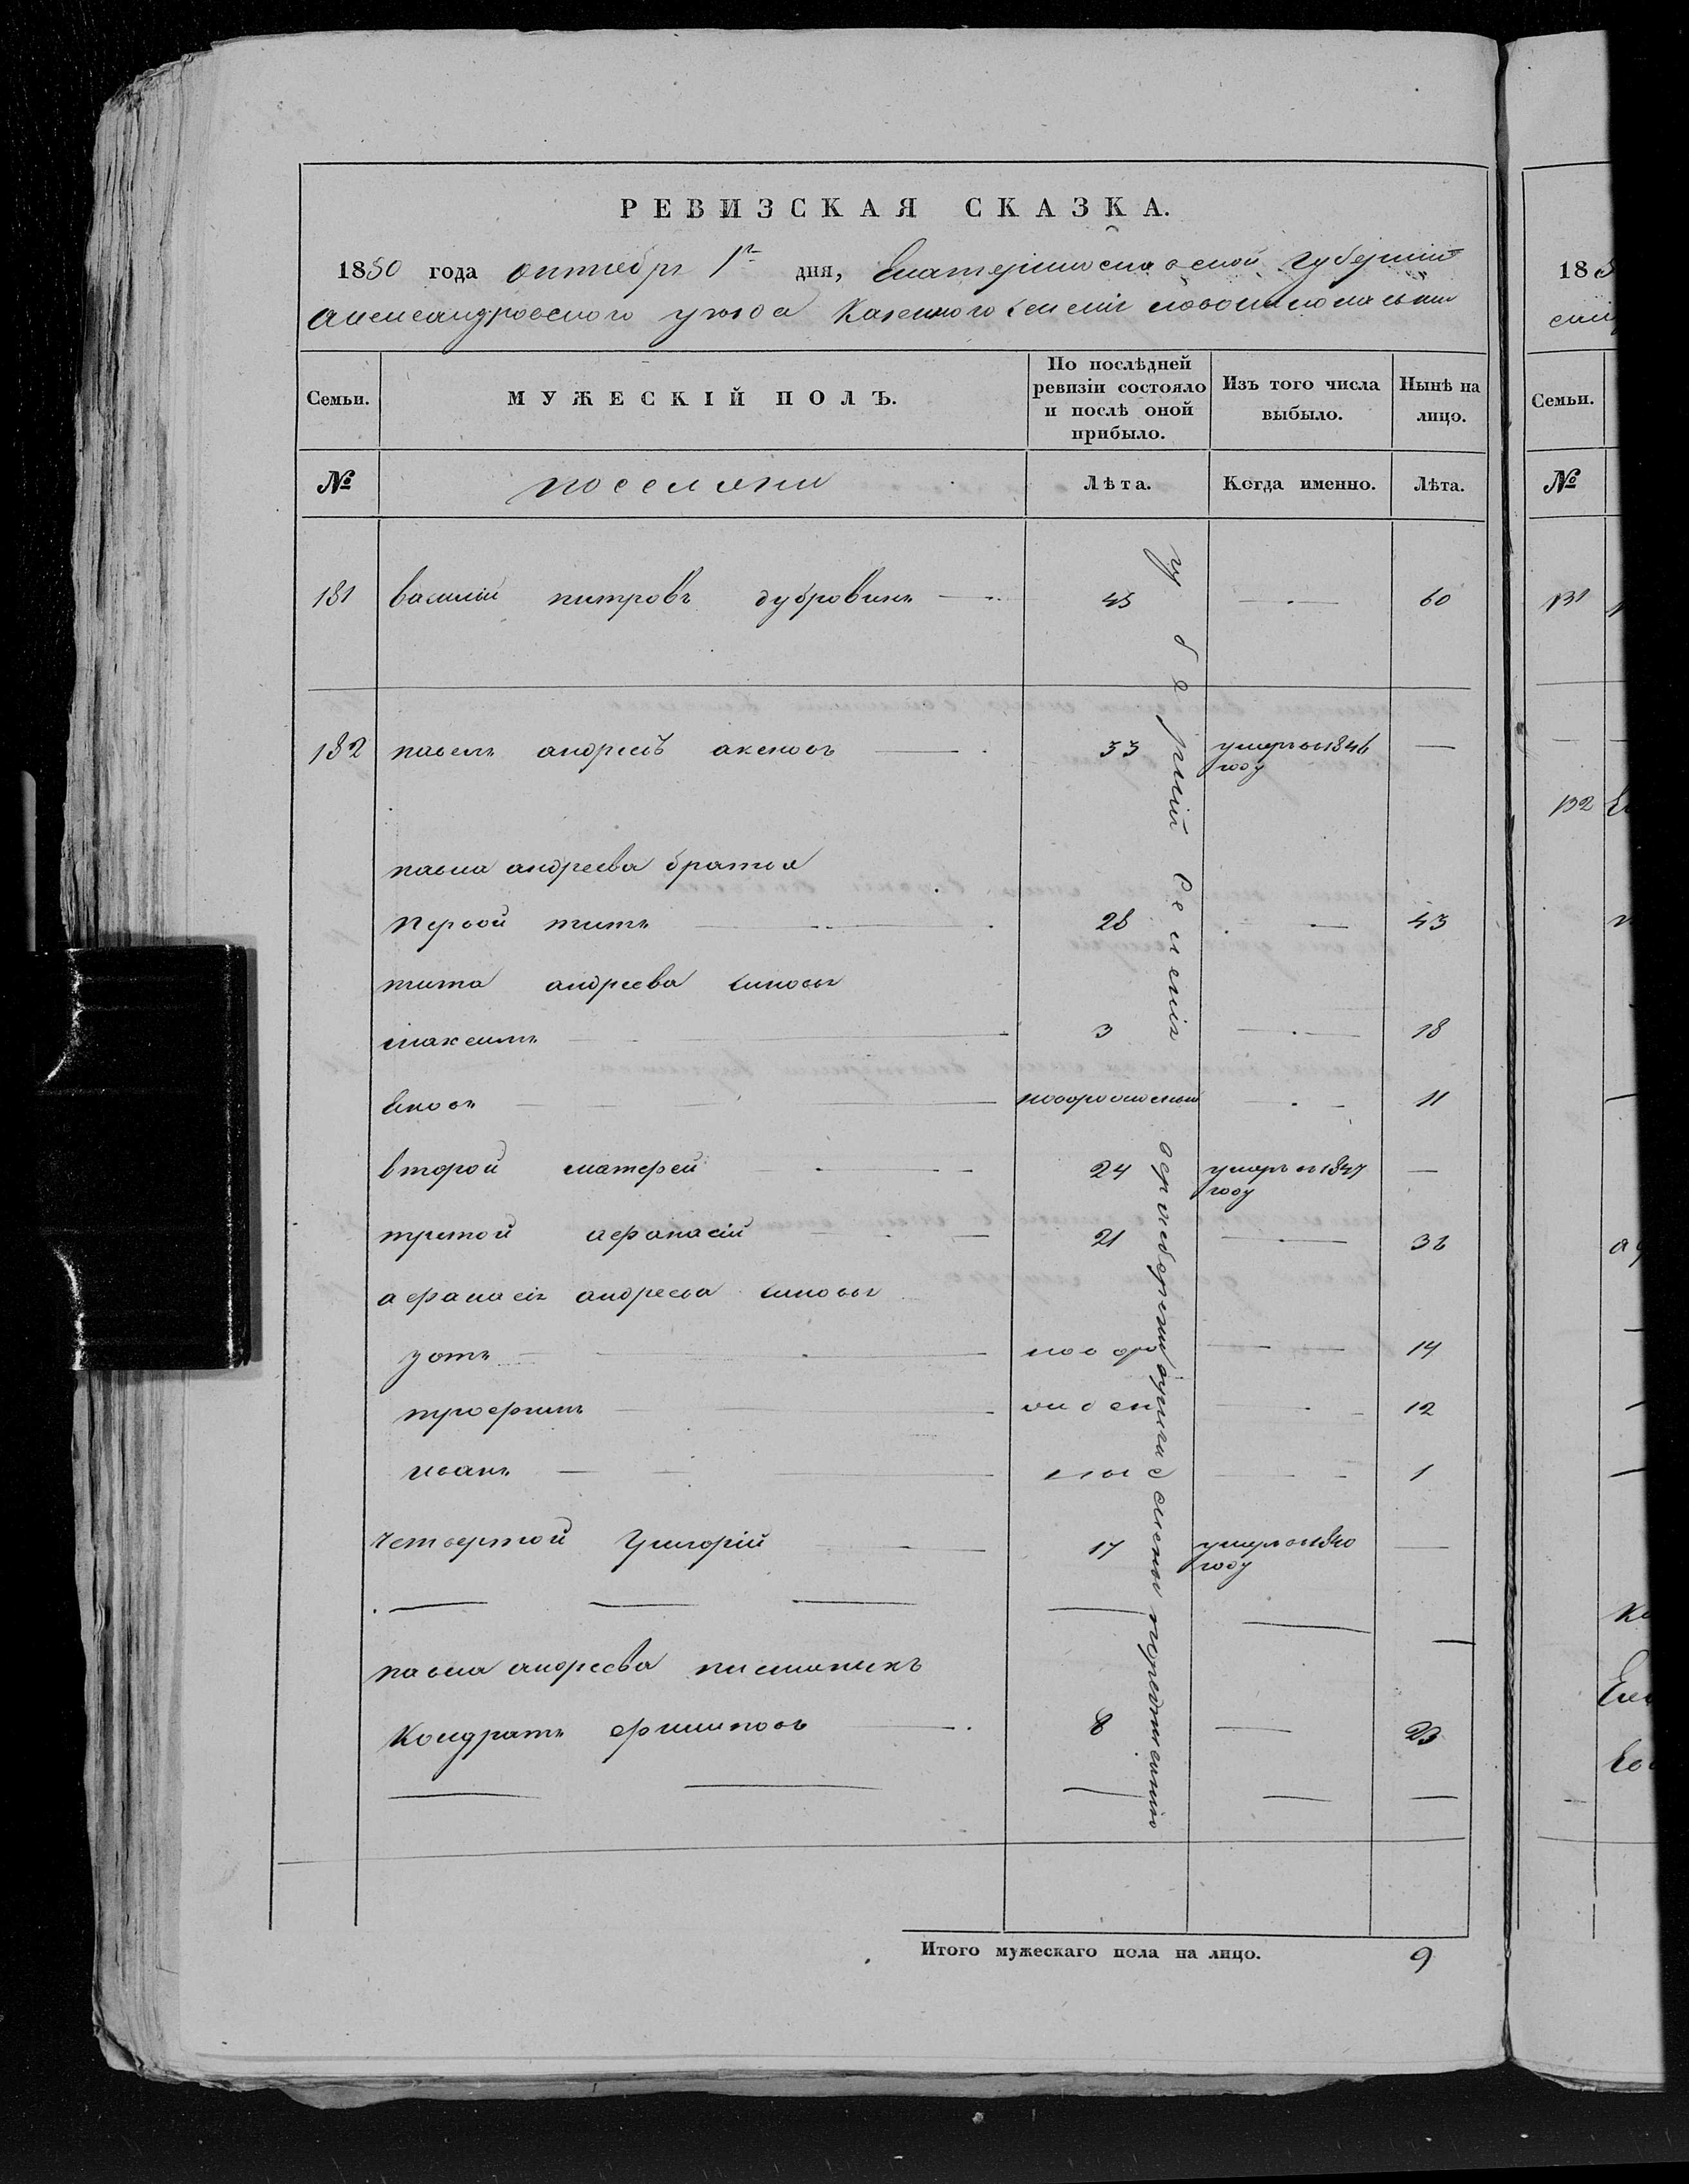 РЕВИЗСКАЯ СКАЗКА.
1850 года октября 1го дня, Екатеринославской Губерніи
Александровского уезда Казенного селенія Новониколаевки
Семьи.
МУЖЕСКІЙ ПОЛЪ.
По послѣдней ревизіи состояло и послѣ оной прибыло.
Изъ того числа выбыло.
Нынѣ на лицо.
№
поселяни
Лѣта.
Когда именно.
Лѣта.
131 василій питровъ дубровинъ 45 60
132 павелъ андреевъ аксновъ 33 умеръ в 1846 году
павла андреева братья
Первой титъ 28 43
тита андреева сыновя
максимъ 3 18
новорожденны 11
второй матфей 24 умеръ в 1847 году
третой афанасій 21 36
афанасія андреева сыновя
зотъ ново 14
трофимъ 12
иванъ 1
четвертой Григорій 17 умеръ в 1840 году
павла андреева племяникъ
Кондратъ филиповъ 8 23
губерніи селенія
Итого мужескаго пола на лицо. 9
18
Семьи.
№
131
132